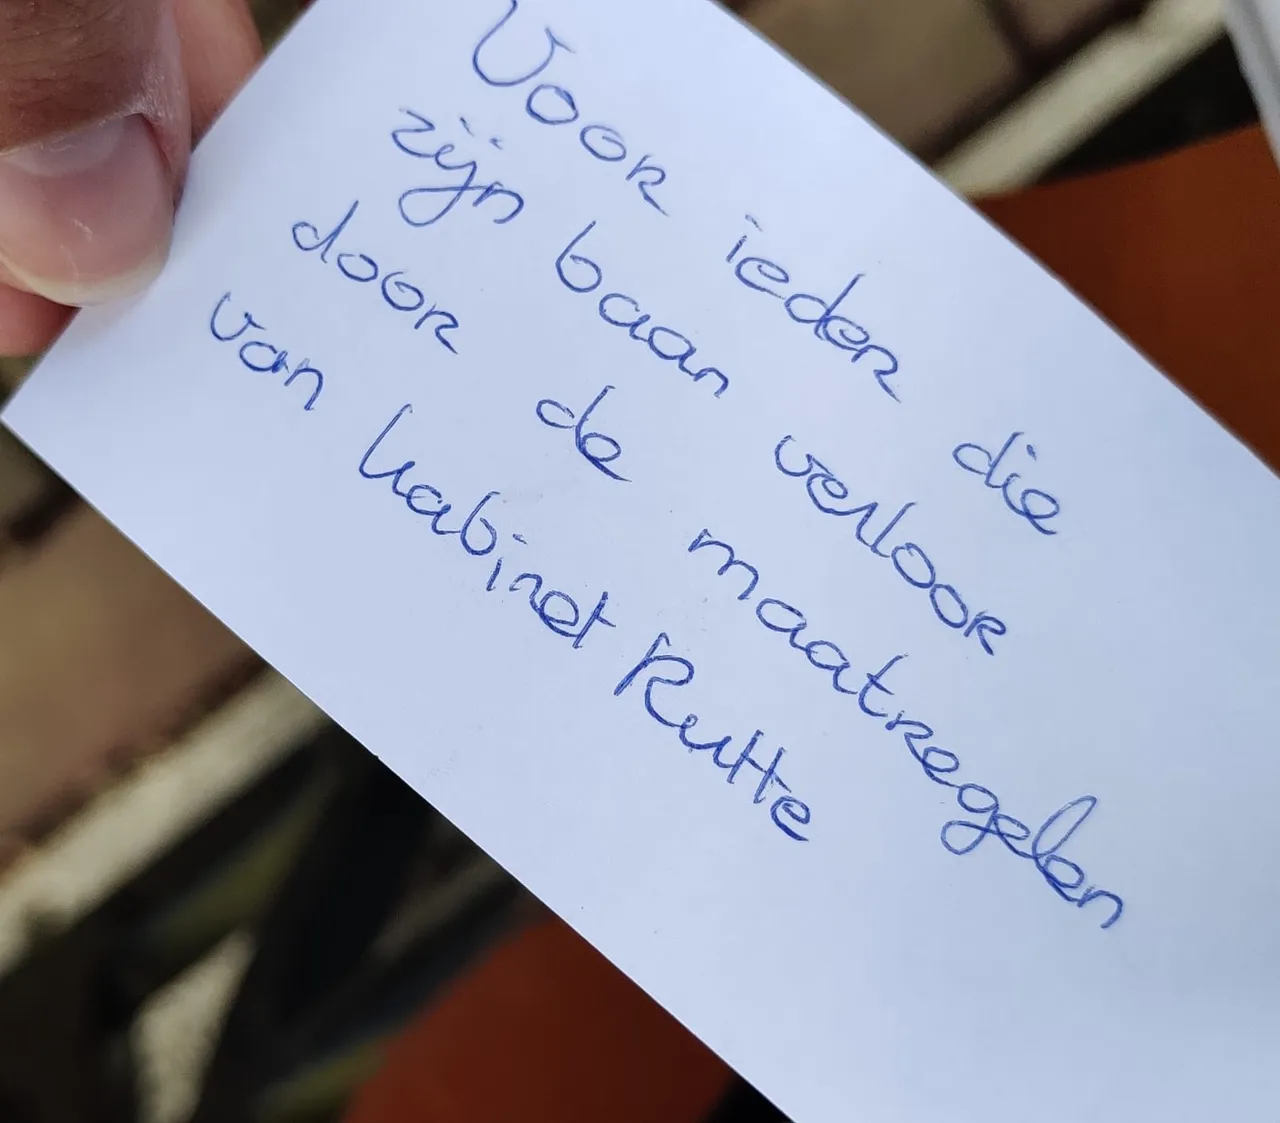 Voor ieder die
zijn baan verloor
door de maatregelen
van kabinet Rutte